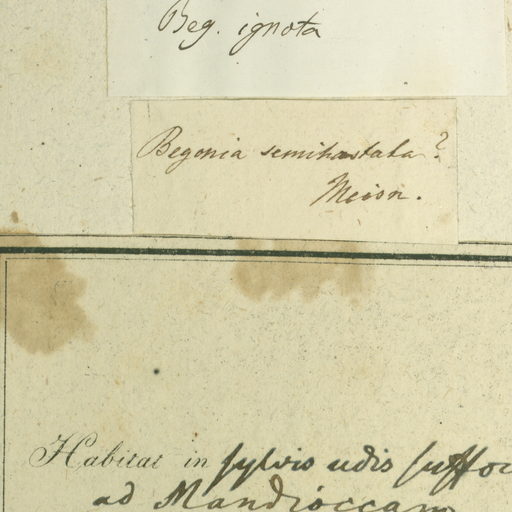 Beg. ignota
Begonia semihastata?
Meisn.
Habitat in sylvis udis
ad Mandioccam